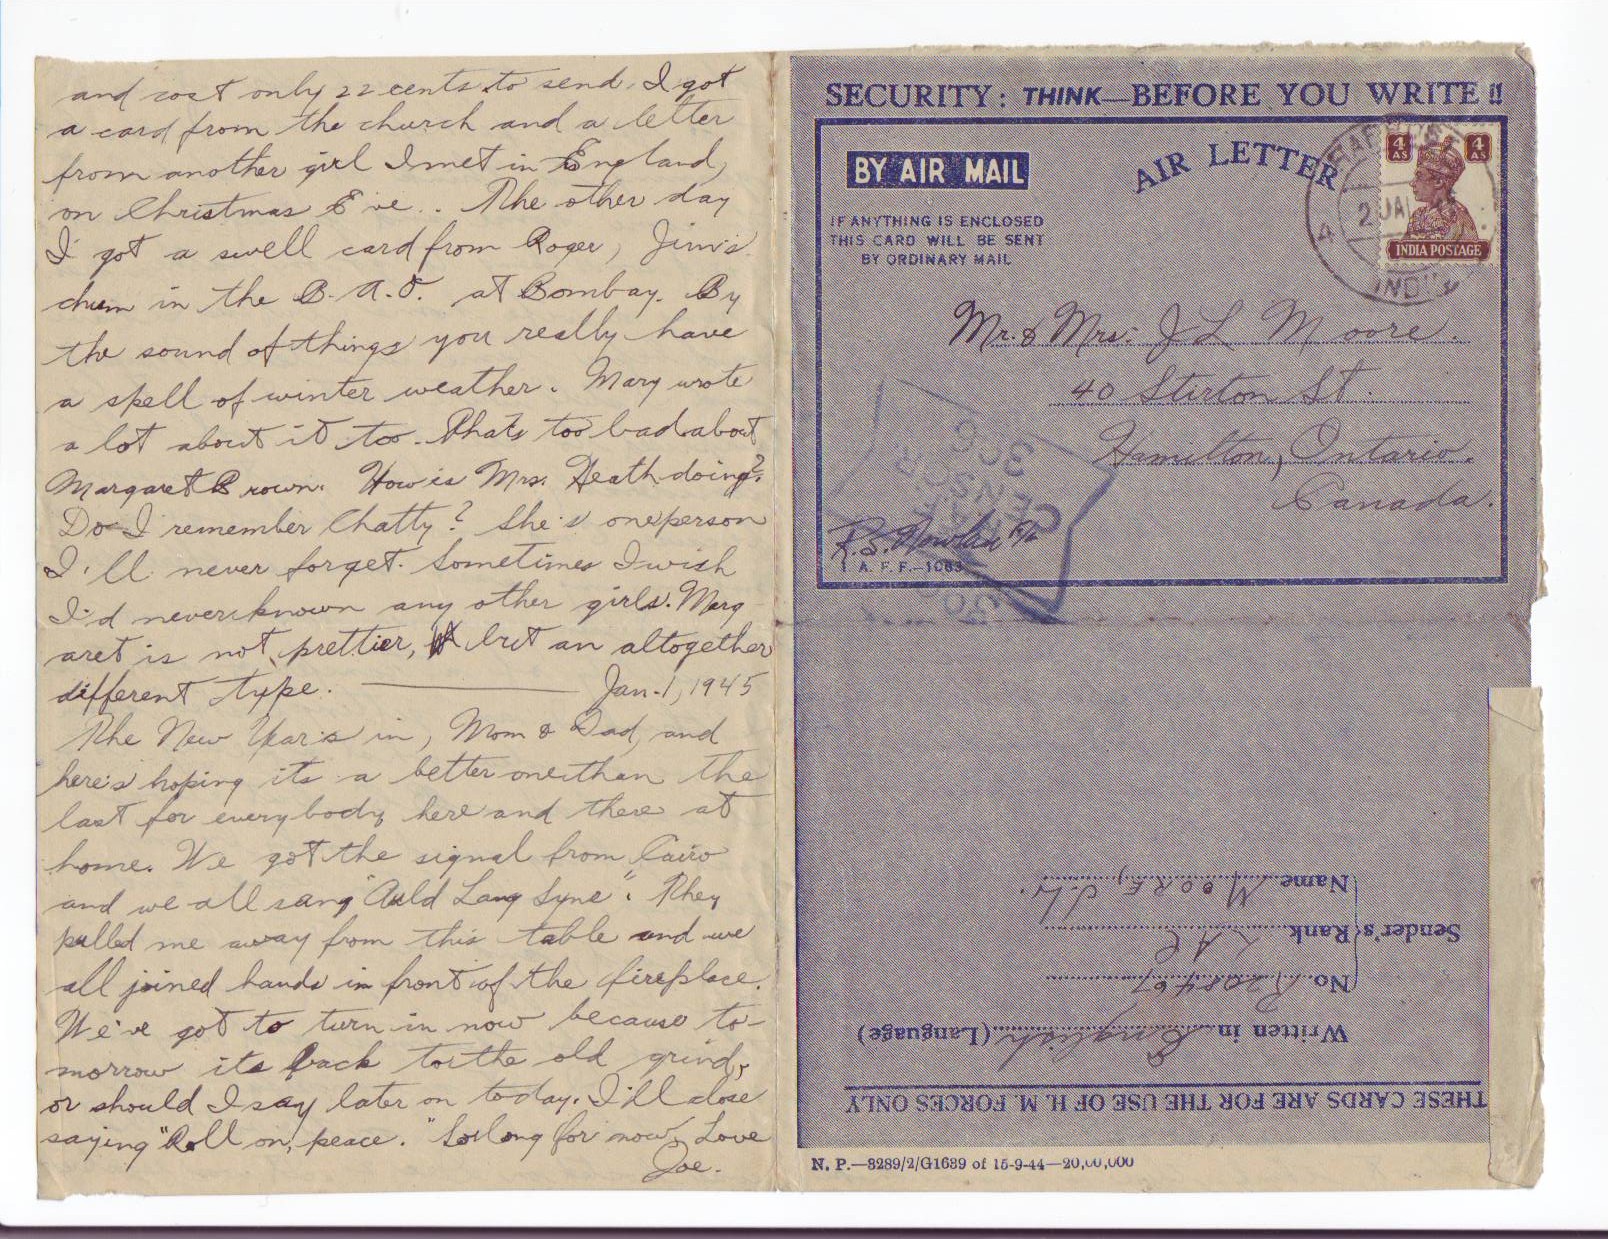 and cost only 22 cents to send. I got
a card from the church and a letter
from another girl I met in England,
on Christmas Eve.. The other day
I got a swell card from Roger, Jim's
chum in the B.A.O. at Bombay. By
the sound of things you really have
a spell of winter weather. Mary wrote
a lot about it too. Thats too bad about
Margaret Brown. How is Mrs. Heath doing?
Do I remember Chatty? She's one person
I'll never forget. Sometimes I wish
I'd never known any other girls. Marg
aret is not prettier, but an altogether
different type. ——— Jan-1, 1945
The New Year's in, Mom & Dad, and
here's hoping its a better one than the
last for everybody, here and there at
home. We got the signal from Cairo
and we all sang "Auld Lang Syne". They
pulled me away from this table and we
all joined hands in front of the fireplace.
We've got to turn in now because to-
morrow its back to the old grind,
or should I say later on today. I'll close
saying "Roll on, peace." So long for now, Love
Joe.
SECURITY: THINK—BEFORE YOU WRITE !!
BY AIR MAIL
AIR LETTER
IF ANYTHING IS ENCLOSED
THIS CARD WILL BE SENT
BY ORDINARY MAIL
4 AS 4 AS
INDIA POSTAGE
2 JAN
INDIA
Mr. & Mrs. J L Moore.
40 Stirton St.
Hamilton, Ontario.
Canada.
I. A. F. F.—1063
Name MOORE, J.L.
Sender's Rank LAC
No. R208467
Written in English (Language)
THESE CARDS ARE FOR THE USE OF H. M. FORCES ONLY
N. P.—8289/2/G1639 of 15-9-44—20,00,000